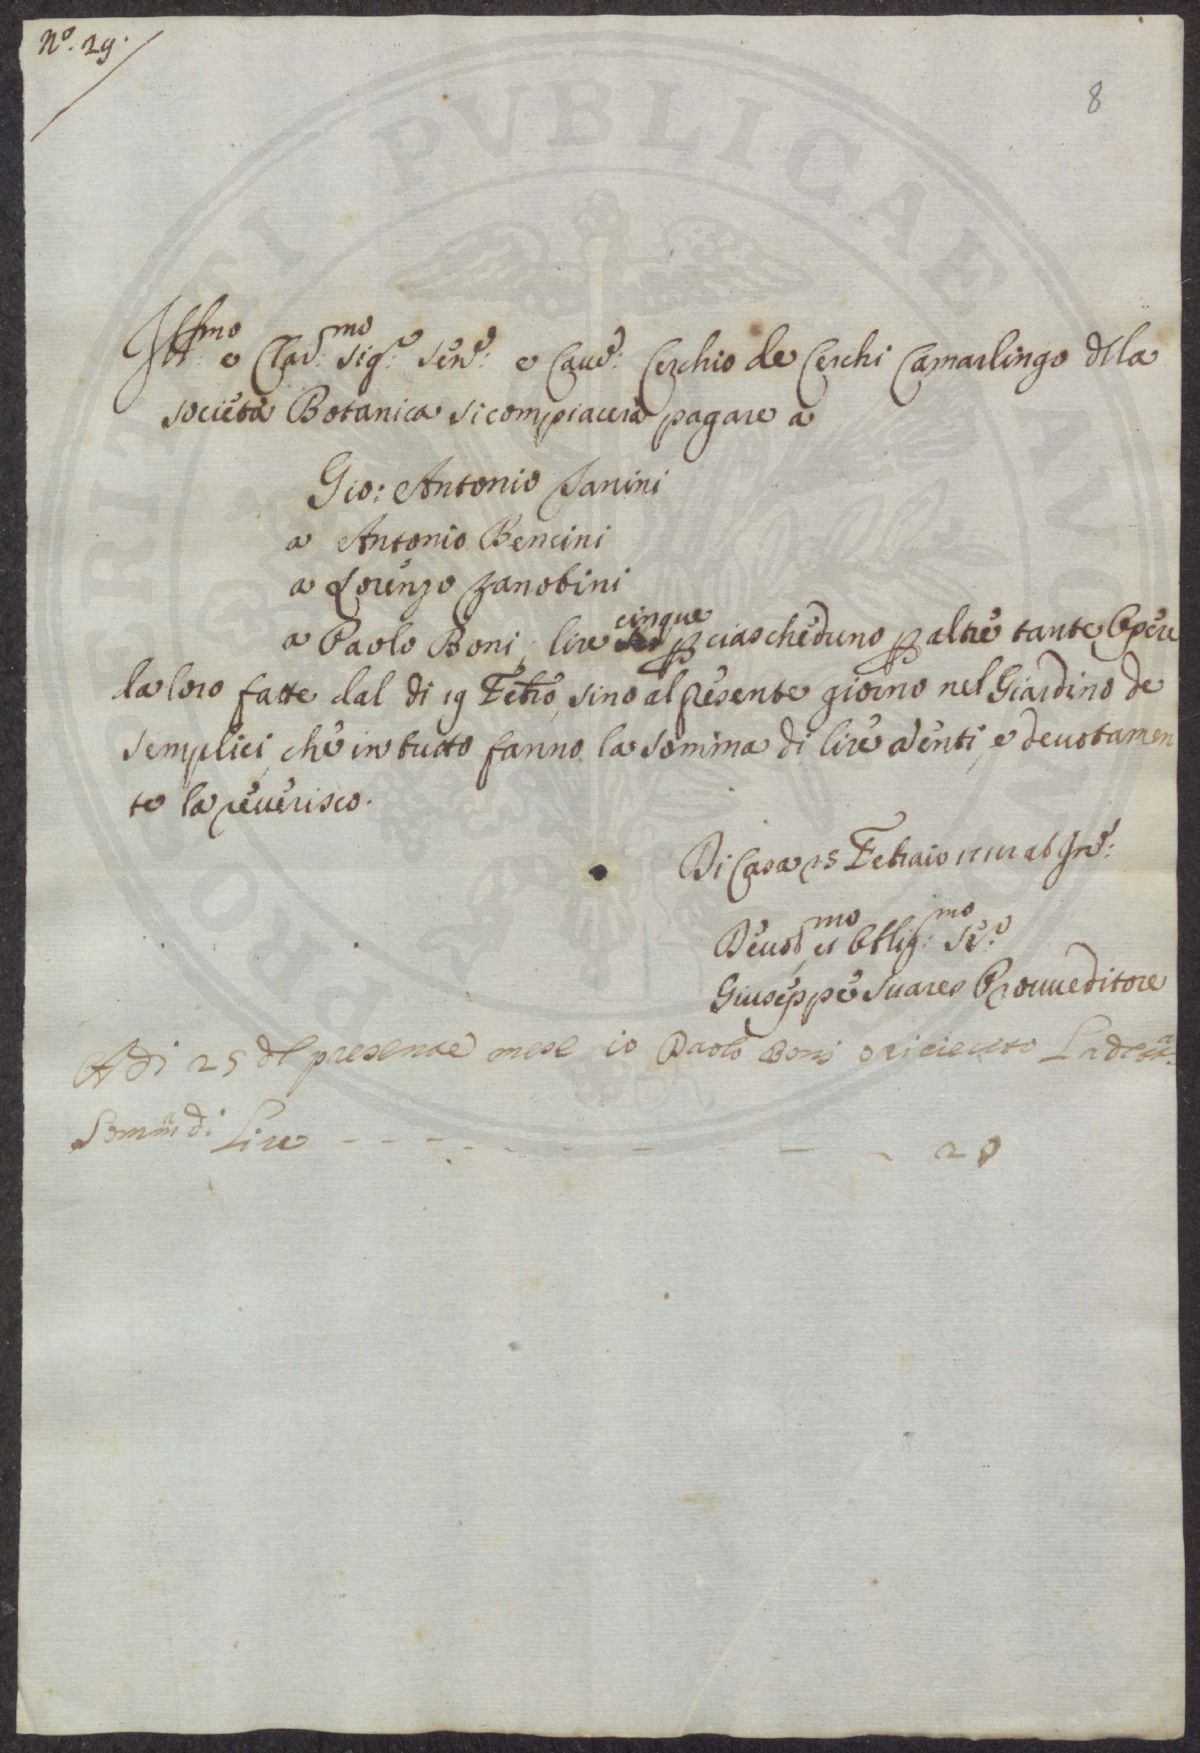 N.º 29.
8
Ill.mo e Clar.mo Sig.e Sen.e e Cau.e Cerchio de Cerchi Camarlingo della
società Botanica si compiacerà pagare a
Gio: Antonio Janini
a Antonio Bencini
a Lorenzo Zanobini
cinque
a Paolo Boni, lire p ciascheduno p altre tante Opere
da loro fatte dal di 19 Febro, sino al presente giorno nel Giardino de
semplici, che in tutto fanno la somma di lire venti, e deuotamen
te la reuerisco.
Di Casa 25 Febraio ab Inc.e:
Deuot.mo et Obblig.mo Se.e
Giuseppe Suares Prouueditore
A di 25 del presente mese io Paolo Boni o riceuto La detta
Somma di Lire - - - - - - - - - 20